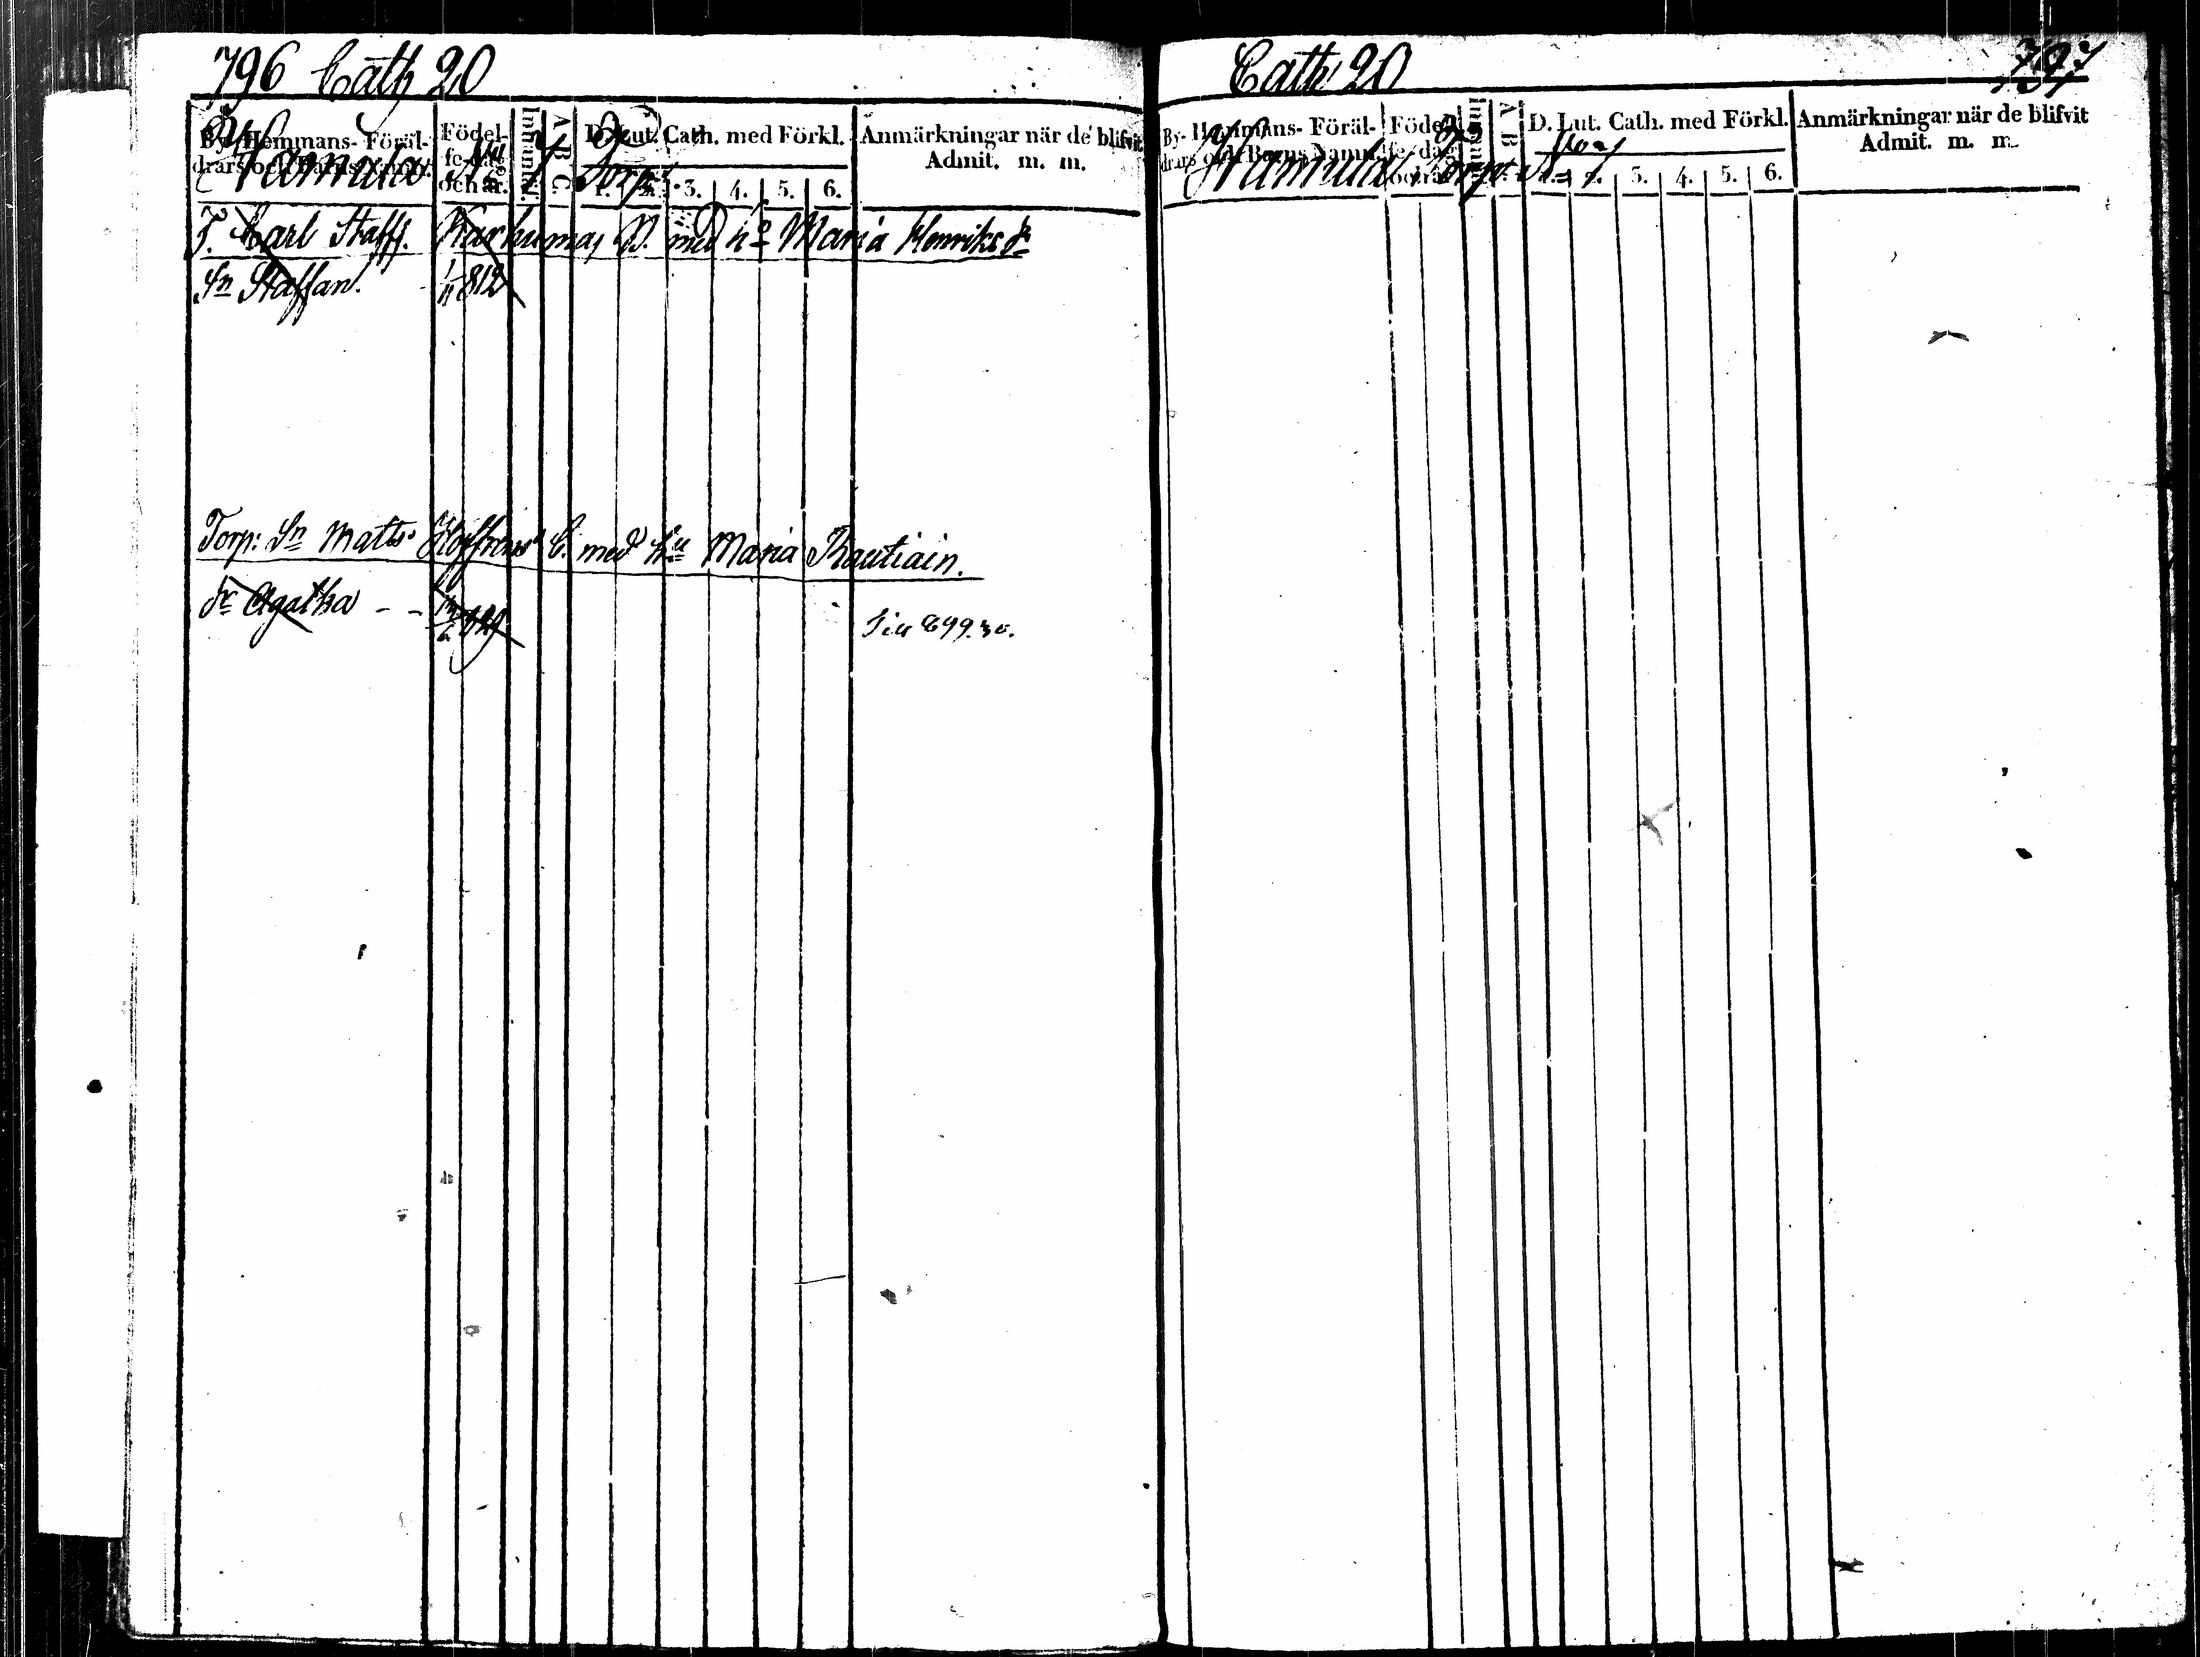 796 Cath 20
By- Hemmans- Föräl-
drars och Barns Namn.
Födel-
se-dag
och år.
Innantil.
A B C
D. Lut. Cath. med Förkl.
3. 4. 5. 6.
Anmärkningar när de blifvit
Admit. m. m.
Hamula N:o 7 Torp
T. Carl Staffs. Karhumaj D. med h:o Maria Henriks dr
Sn Staffan. 1/11 812
Torp: Sn Matts Hoffrens C. med hu Maria Rautiain.
dr Agatha - -
Sid 899. 30.
Cath 20 797
By- Hemmans- Föräl-
drars och Barns Namn.
Födel-
se-dag
och år.
Innantil.
A B C
D. Lut. Cath. med Förkl.
3. 4. 5. 6.
Anmärkningar när de blifvit
Admit. m. m.
Hamula Torp